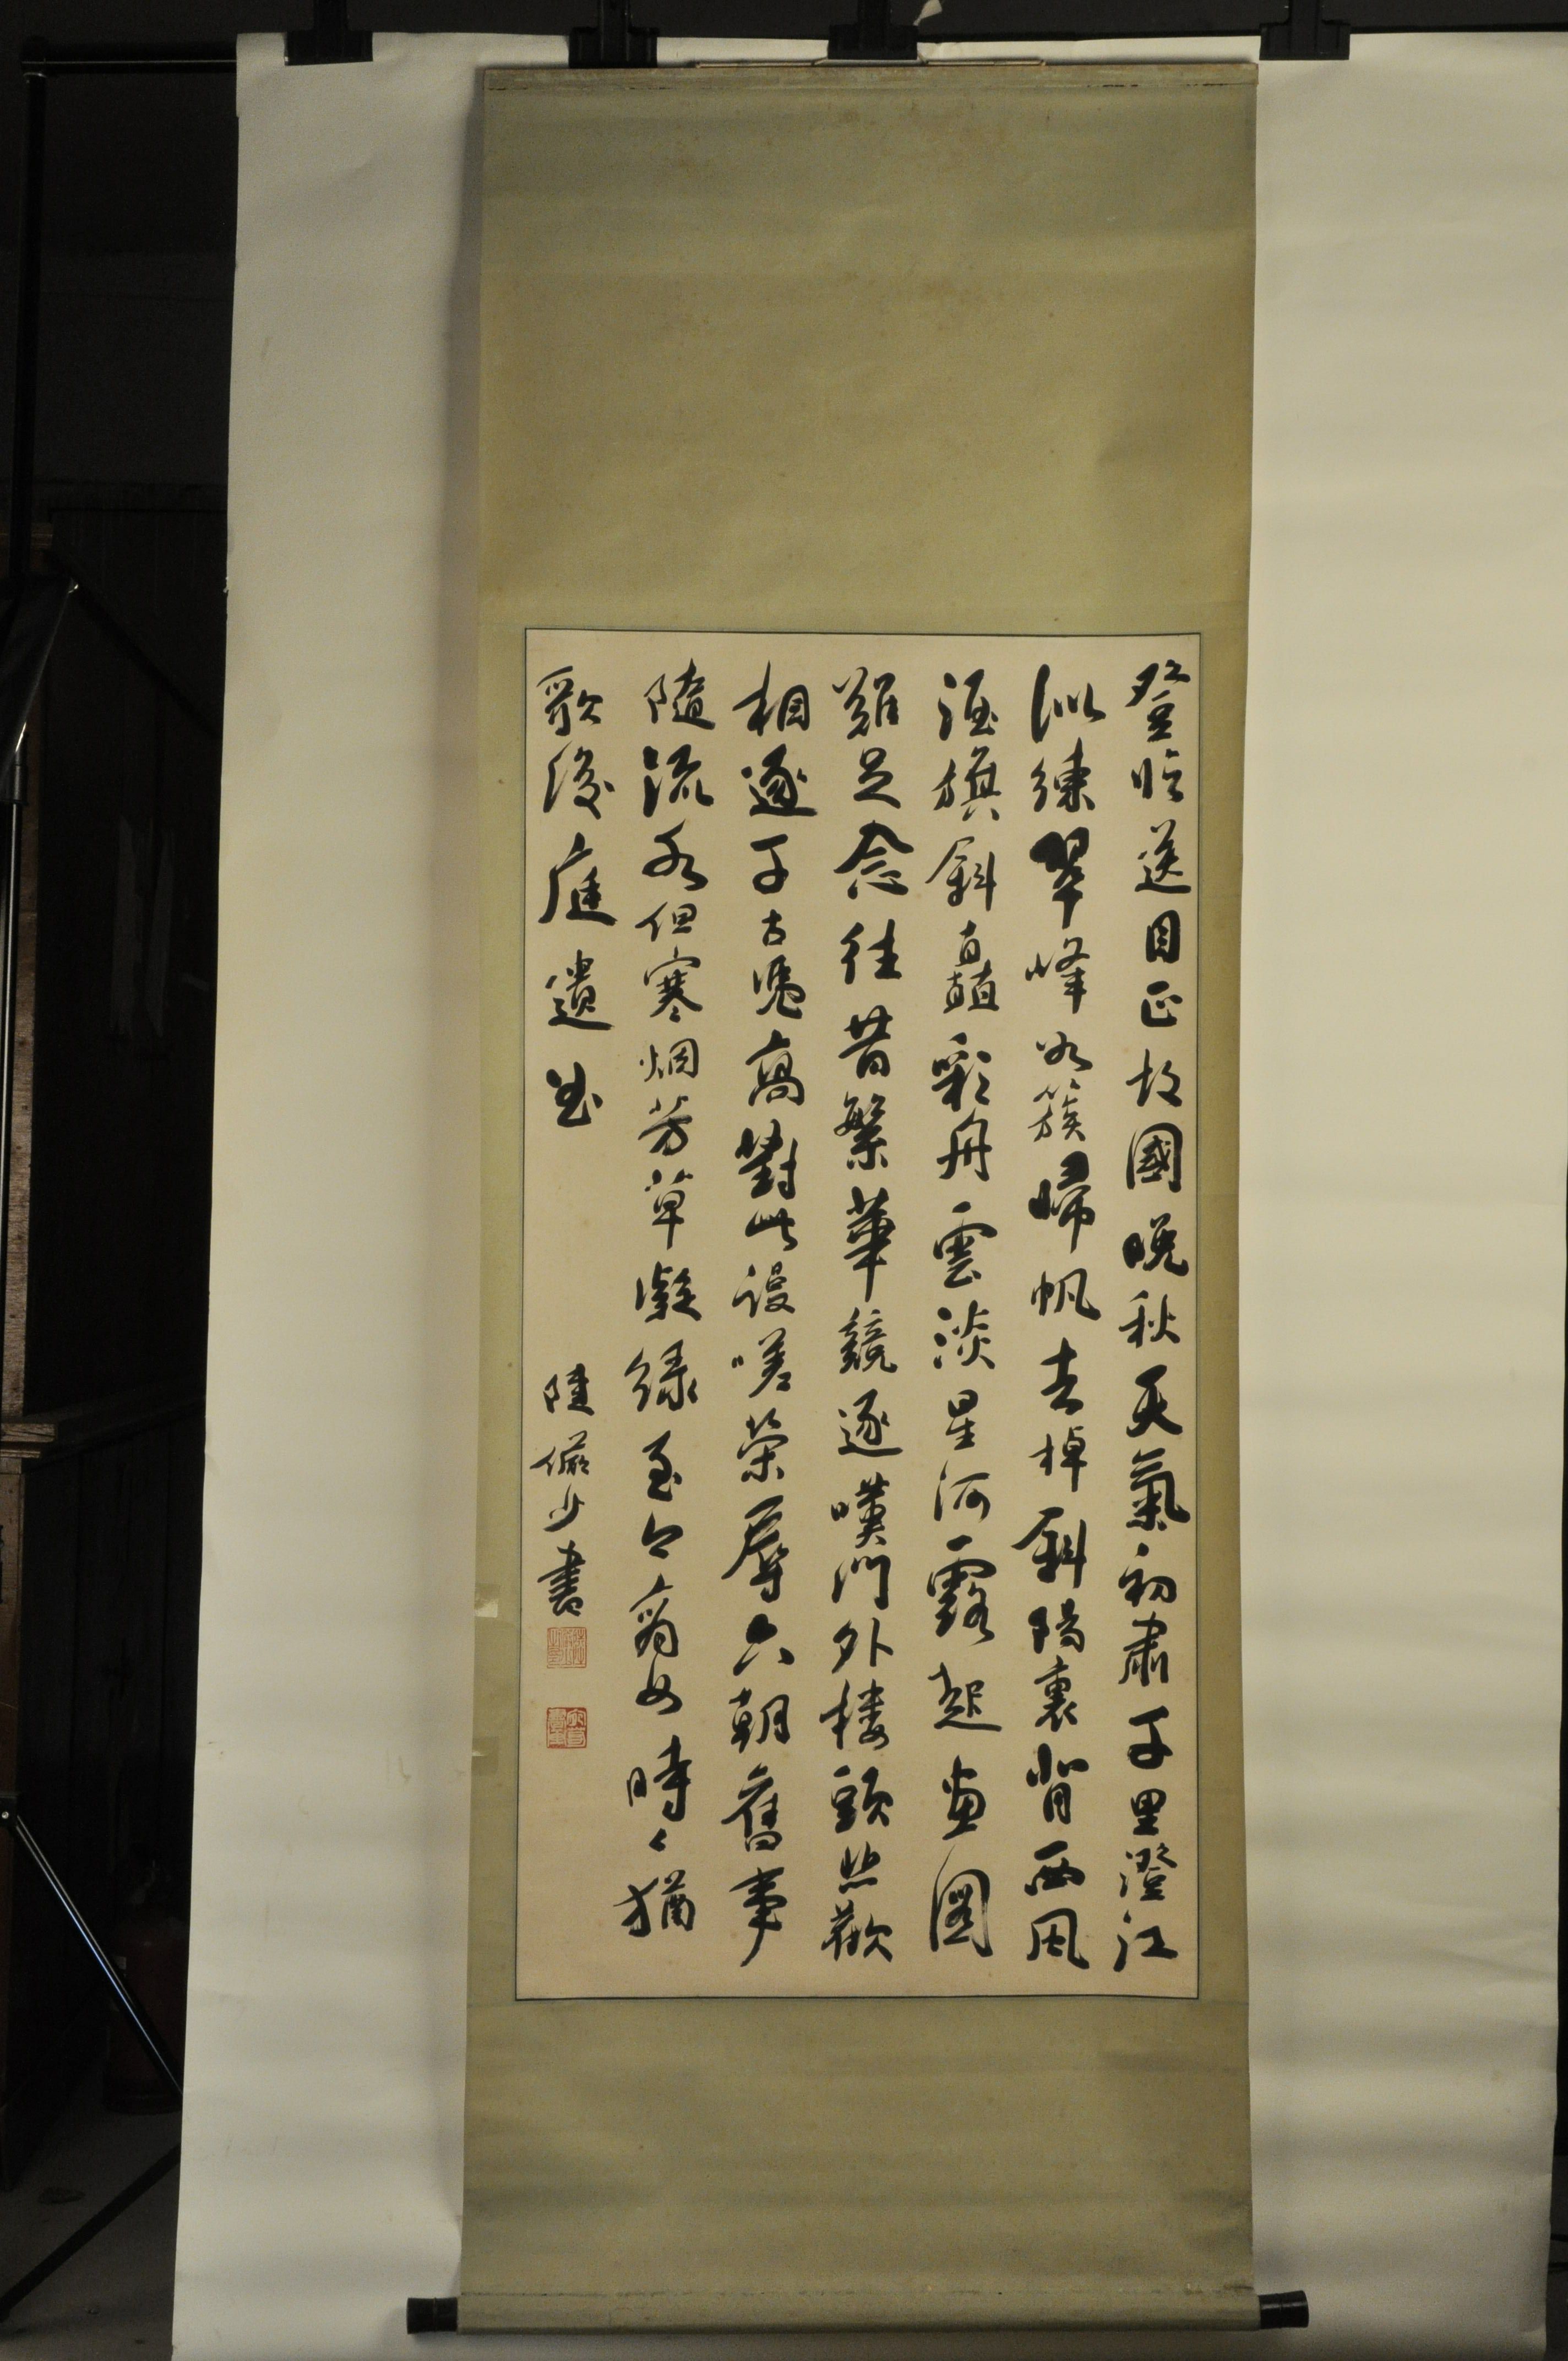 登臨送目正故國晚秋天氣初肅千里澄江
似練翠峰如簇歸帆去棹斜陽裏背西風
酒旗斜矗彩舟雲淡星河露起畫圖
難足念往昔繁華競逐嘆門外樓頭悲歡
相逐千古憑高對此謾嗟榮辱六朝舊事
隨流水但寒烟芳草凝綠至今商女時々猶
歌後庭遺曲
陸儼少書